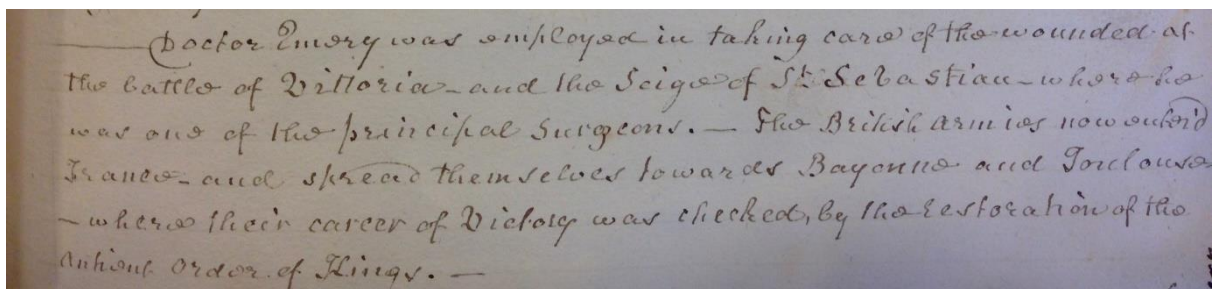 Doctor Emery was employed in taking care of the wounded at
the battle of Vittoria - and the Seige of St. Sebastian - where he
was one of the principal Surgeons. - The British armies now enter'd
France - and spread themselves towards Bayonne and Toulouse
- where their career of Victory was checked, by the restoration of the
antient order of Kings. -